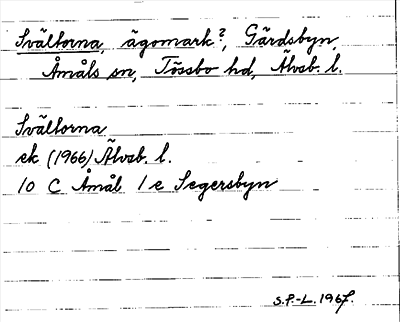 Svältorna, ägomark?, Gärdsbyn,
Åmåls sn, Tössbo hd, Älvsb. l.
Svältorna
ek (1966) Älvsb. l.
10 C Åmål 1 e Segersbyn
S.P.-L. 1967.